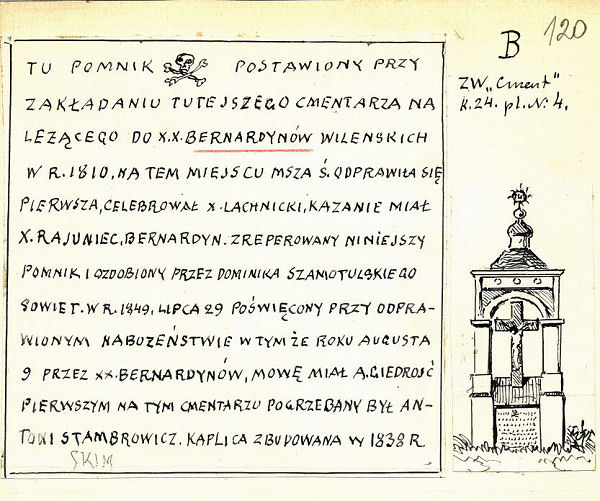 B 120
ZW. "Cment"
k.24. pl. N: 4.
TU POMNIK POSTAWIONY PRZY
ZAKŁADANIU TUTEJSZEGO CMENTARZA NA
LEZĄCEGO DO X.X. BERNARDYNÓW WILENSKICH
W R. 1810, NA TEM MIEJSCU MSZA Ś. ODPRAWIŁA SIĘ
PIERWSZA, CELEBROWAŁ X. LACHNICKI, KAZANIE MIAŁ
X. RAJUNIEC, BERNARDYN. ZREPEROWANY NINIEJSZY
POMNIK I OZDOBIONY PRZEZ DOMINIKA SZAMOTULSKIEGO
SOWIET. W R. 1849, LIPCA 29 POŚWIĘCONY PRZY ODPRA-
WIONYM NABOZEŃSTWIE W TYM ŻE ROKU AUGUSTA
9 PRZEZ XX. BERNARDYNÓW, MOWĘ MIAŁ A. GIEDROŚĆ
PIERWSZYM NA TYM CMENTARZU POGRZEBANY BYŁ AN-
TONI STAMBROWICZ. KAPLICA ZBUDOWANA W 1838 R.
SKIM